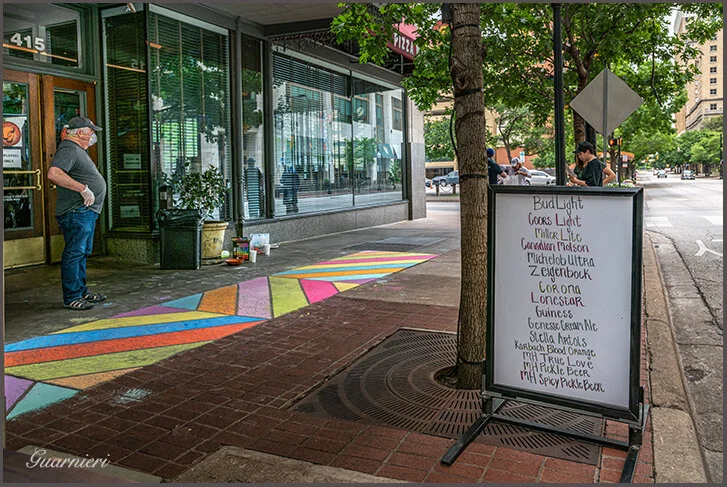 415
PIZZA
Bud Light
Coors Light
Miller Lite
Canadian Molson
Michelob Ultra
Zeigenbock
Corona
Lonestar
Guiness
Genesse Cream Ale
Stella Artois
Karbach Blood Orange
MH True Love
MH Pickle Beer
MH Spicy Pickle Beer
Guarnieri